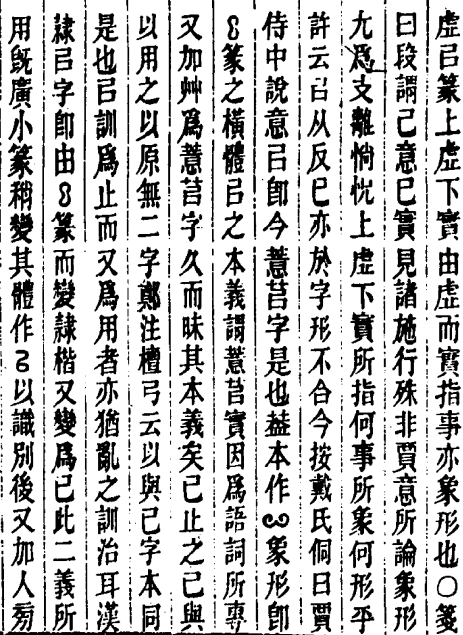 虛㠯篆上虛下實由虛而實指事亦象形也○箋
曰段謂己意已實見諸施行殊非賈意所論象形
尢爲支離惝怳上虛下實所指何事所象何形乎
許云㠯从反巳亦於字形不合今按戴氏侗曰賈
侍中說意㠯卽今薏苢字是也葢本作象形卽
篆之橫體㠯之本義謂薏苢實因爲語詞所專
又加艸爲薏苢字久而昧其本義矣已止之已與
以用之以原無二字鄭注檀弓云以與已字本同
是也㠯訓爲止而又爲用者亦猶亂之訓治耳漢
隷㠯字卽由篆而變隷楷又變爲已此二義所
用旣廣小篆稍變其體作以識別後又加人㫄